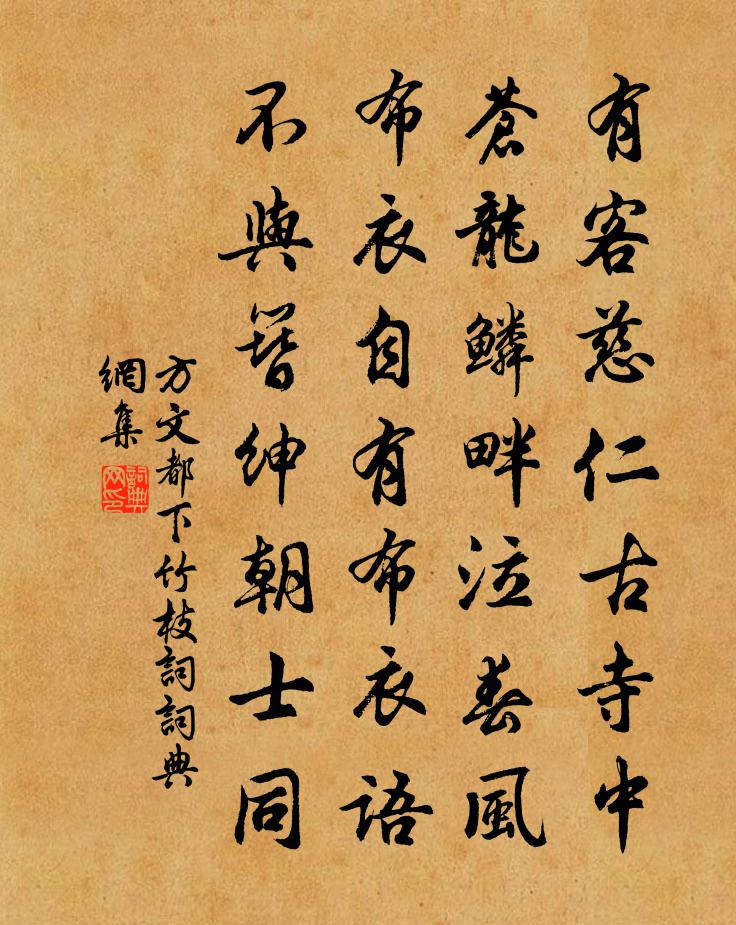 有客慈仁古寺中
蒼龍鱗畔泣春風
布衣自有布衣語
不與簪紳朝士同
方文都下竹枝詞詞典
網集
詞典
网印